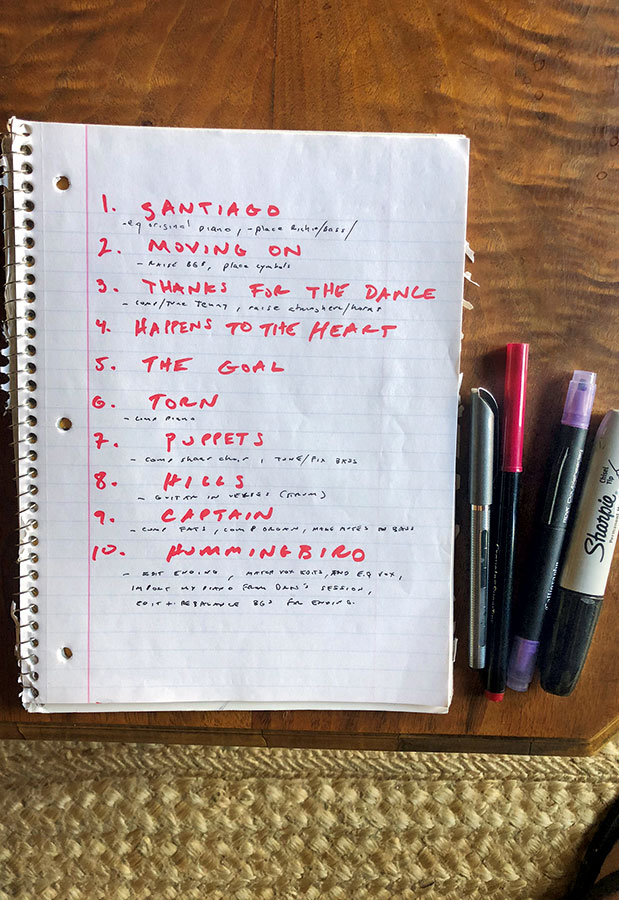 1. SANTIAGO
- eq original piano, - place Richie/Bass/
2. MOVING ON
- RAISE BGs, place cymbals
3. THANKS FOR THE DANCE
- comp/tune Jenny, raise atmosphere/horns
4. HAPPENS TO THE HEART
5. THE GOAL
6. TORN
- comp piano
7. PUPPETS
- comp choir, TUNE/FIX BASS
8. HILLS
- GUITAR IN VERSES (STRUM)
9. CAPTAIN
- COMP, COMP ORGAN, MAKE NOTES ON BASS
10. HUMMINGBIRD
- EDIT ENDING, MATCH VOX EDITS, AND EQ VOX,
IMPORT MY PIANO FROM DAN'S SESSION,
EDIT + REBALANCE BGS FOR ENDING.
Sharpie
Chisel Tip